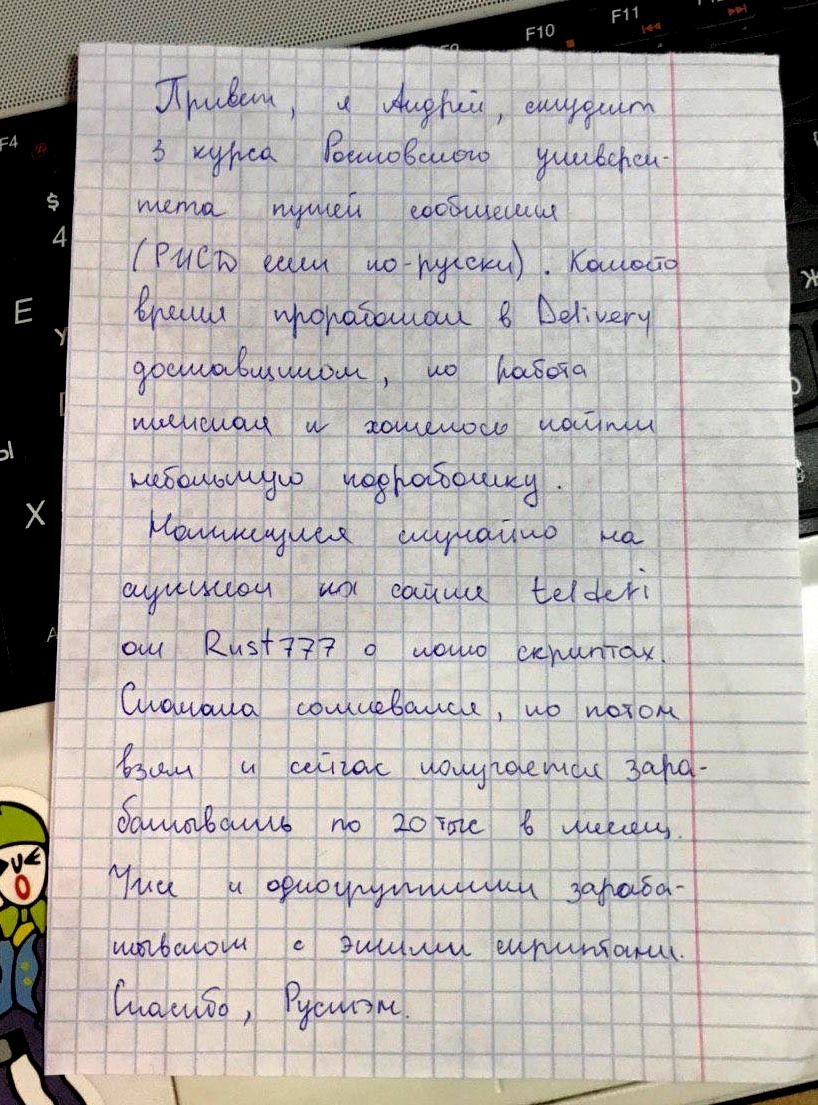 F10
F11
F4
$
4
E
X
Ы
Привет, я Андрей, студент
3 курса Ростовского универси-
тета путей сообщения
(РИСД если по-русски). Какоето
время проработал в Delivery
доставщиком, но работа
тяжелая и хотелось найти
небольшую подработку.
Наткнулся случайно на
аукцион на сайте telderi
от Rust777 о лото скриптах.
Сначала сомневался, но потом
взял и сейчас получается зара-
батывать по 20 тыс в месяц.
Уже и одногруппники зараба-
тывают с этими скриптами.
Спасибо, Рустэм.